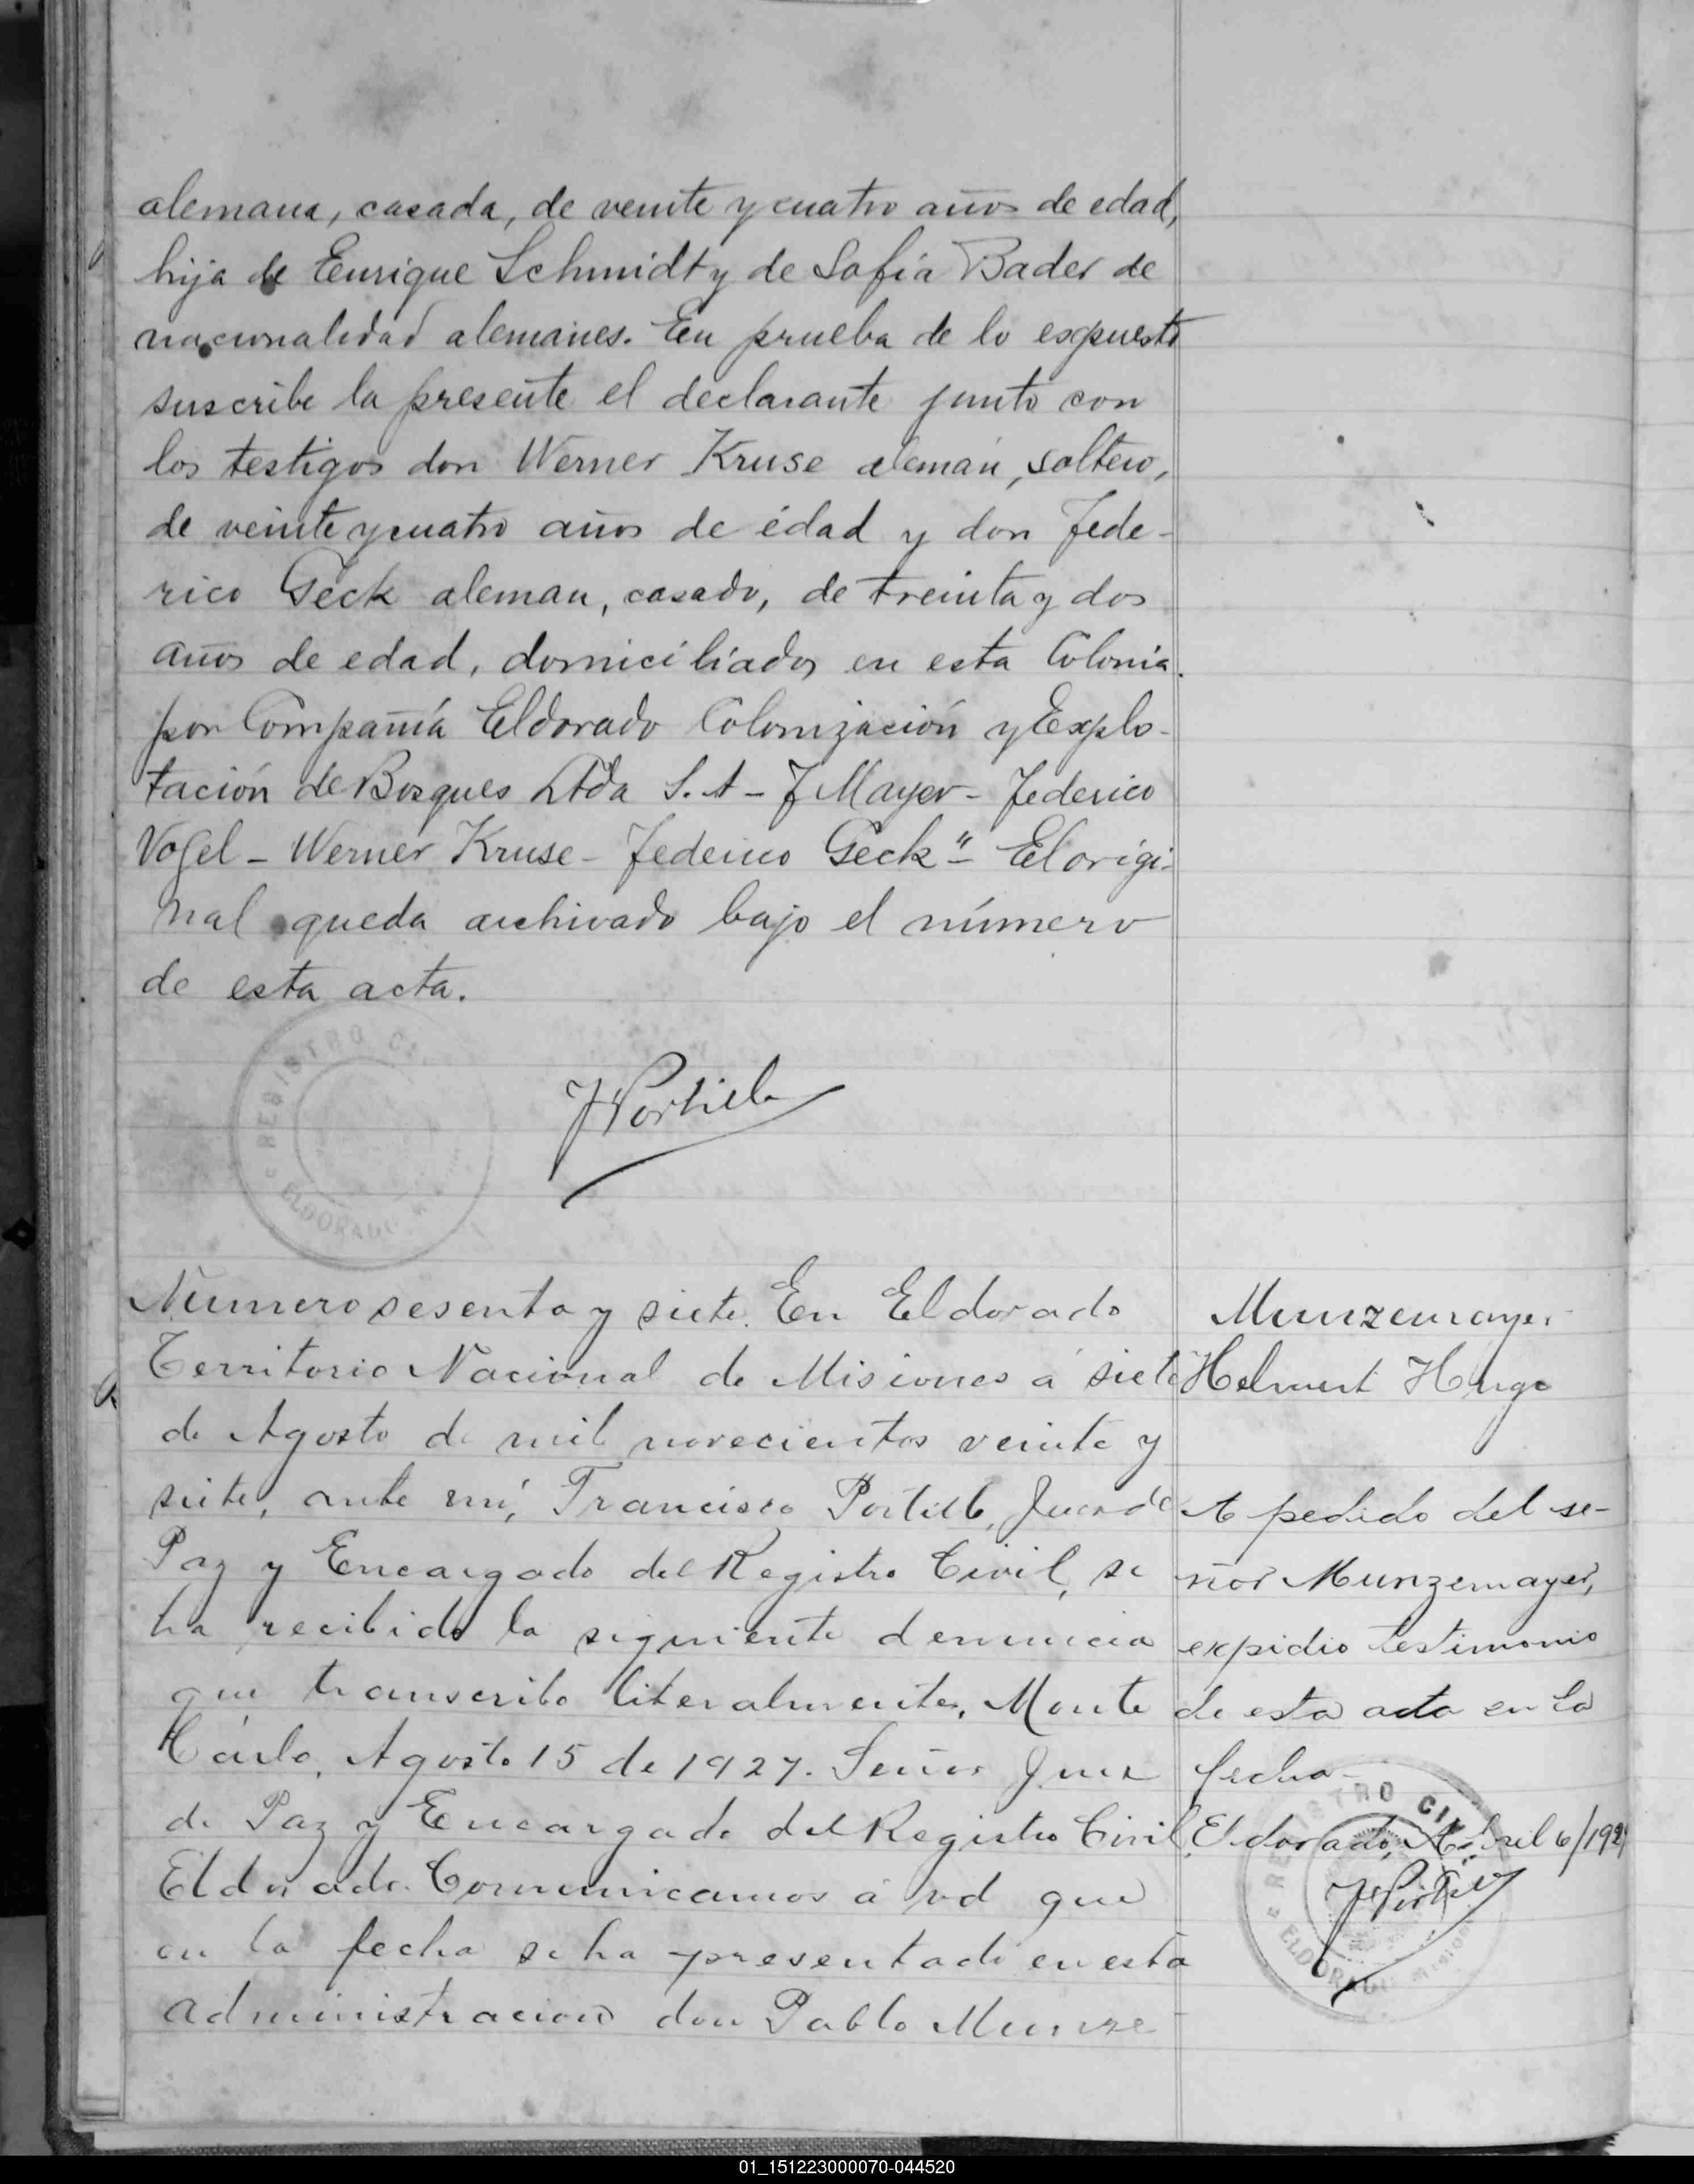 alemana, casada, de veinte y cuatro años de edad,
hija de Enrique Schmidt y de Sofía Bader de
nacionalidad alemanes. En prueba de lo expuesto
suscribe la presente el declarante junto con
los testigos don Werner Kruse alemán, soltero,
de veinte y cuatro años de edad y don Fede-
rico Geck aleman, casado, de treinta y dos
años de edad, domiciliados en esta Colonia.
por Compañía Eldorado Colonización y Explo-
tación de Bosques Ltda S.A - J Mayer - Federico
Vogel - Werner Kruse - Federico Geck" - El origi-
nal queda archivado bajo el número
de esta acta.
REGISTRO CI
ELDORADO
FPortillo
Numero sesenta y siete. En Eldorado
Territorio Nacional de Misiones á siete
de Agosto de mil novecientos veinte y
siete, ante mí, Francisco Portillo, Juez de
Paz y Encargado del Registro Civil, se
ha recibido la siguiente denuncia
que transcribo literalmente. Monte
Cárlo, Agosto 15 de 1927. Señor Juez
de Paz y Encargado del Registro Civil
Eldorado. Comunicamos á vd que
en la fecha se ha presentado en esta
administracion don Pablo Munze
Munzemayer
Helmut Hugo
A pedido del se-
ñor Munzemayer,
expidio testimonio
de esta acta en la
fecha-
Eldorado, Abril 6/192
FPortillo
REGISTRO CIV
ELDORADO Misiones
01_151223000070-044520